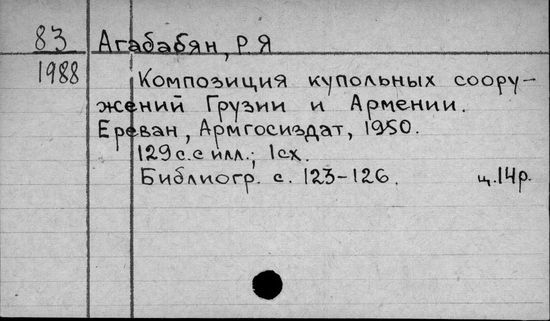 83 Агабабян, Р Я
1988 Композиция купольных соору-
жений Грузии и Армении.
Ереван, Армгосиздат, 1950.
129 с. с илл.; 1 сх.
Библиогр. с. 123-126. ц. 14 р.